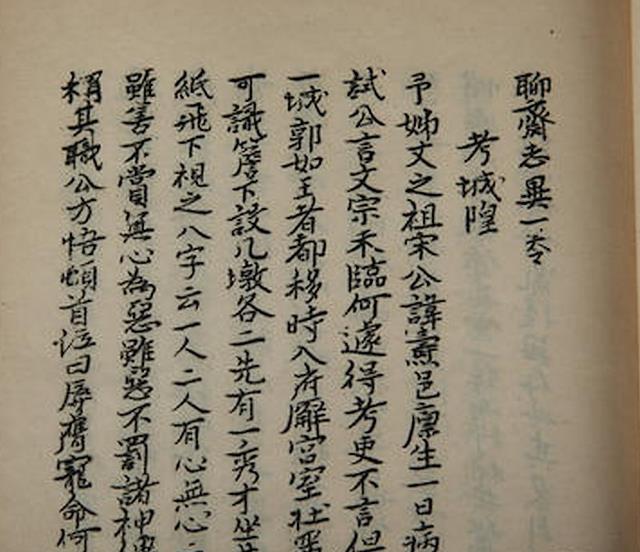 聊齋志異一卷
考城隍
予姊丈之祖宋公諱燾邑廩生一日病
試公言文宗未臨何遽得考吏不言但
一城郭如王者都移時入府廨宮室壯
可識簷下設几墩各二先有一秀才坐
紙飛下視之八字云一人二人有心無心二
雖善不賞無心為惡雖惡不罰諸神
稱其職公方悟頓首泣曰辱膺寵命何